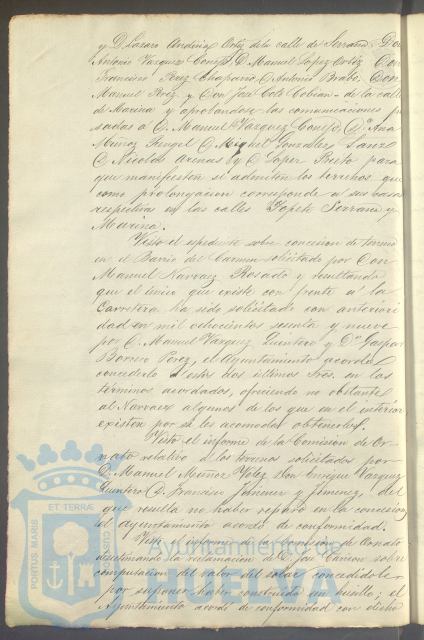 y D. Lazaro Ortiz de la calle de Serrano, Don
Antonio Vazquez Conejo, D. Manuel Lopez Ortiz, Don
Francisco Perez Chaparro, D. Antonio Bravo, Don
Manuel Perez, y Don José Coto Cobian de la calle
de Marina y aprobandose las comunicaciones pa
sadas á D. Manuel Vazquez Conejo, D.ª Ana
Muñoz Rengel, D. Miguel Gonzalez
D. Nicolas Arenas y D. Prieto para
que manifiesten si admiten los terrenos que
como prolongacion corresponde á sus casas
respectivas en las calles Topete Serrano y
Marina.
Visto el espediente sobre concesion de terreno
en el Barrio del Carmen solicitado por Don
Manuel Narvaez Rosado y resultando
que el único que existe con frente á la
Carretera ha sido solicitado con anteriori
dad en mil ochocientos sesenta y nueve
por D. Manuel Vazquez Quintero y D.n Gaspar
Borrero Perez, el Ayuntamiento acordó
concederlo á estos dos ultimos Sres. en los
términos acordados, ofreciendo no obstante
al Narvaez algunos de los que en el interior
existen por si le acomoda obtenerlos.
Visto el informe de la Comision de Or
nato relativo á los terrenos solicitados por
D. Manuel Muñoz Don Enrique Vazquez
Quintero D. Francisco Jimenez y Jimenez, del
que resulta no haber reparo en la concesion
el ayuntamiento acordó de conformidad.
Visto el informe de la Comision de Ornato
desestimando la reclamacion de D. José Carrion sobre
computacion del valor del solar concedidole
por suponer haber construido un husillo; el
Ayuntamiento acordó de conformidad con dicho
PORTUS MARIS
ET TERRÆ
CUSTODIA
Ayuntamiento de
HUELVA